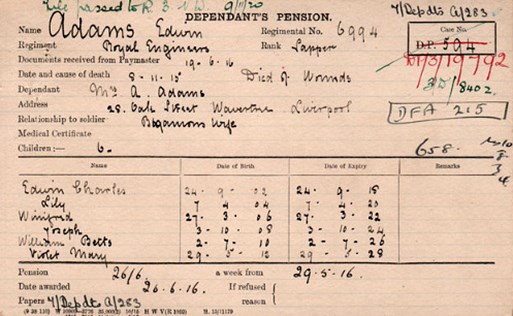 File passed to R. 3. 9/11/20
DEPENDANT'S PENSION. 7/Depdts A/283
Name Adams Edwin Regimental No. 6994 Case No.
Regiment Royal Engineers Rank Sapper D.P. 594
Documents received from Paymaster 19-6-16
Date and cause of death 8-11-15 Died of Wounds
Dependant Mrs A. Adams
Address 28. Street Wavertree Liverpool DFA 215
Relationship to soldier Bigamous Wife
Medical Certificate
Children:— 6. 658.
Name Date of Birth Date of Expiry Remarks
Edwin Charles 24 - 9 - 02 24 - 9 - 18
Lily 7 4 04 7 - 4 - 20
Winifred 27 - 3 - 06 27 - 3 - 22
Joseph 3 - 10 - 08 3 - 10 - 24
William Betts 2 - 7 - 10 2 - 7 - 26
Violet Mary 29 - 5 - 12 29 - 5 - 28
Pension 26/6 a week from 29-5-16.
Date awarded 26-6-16 If refused
Papers 7/Depdts A/283 reason